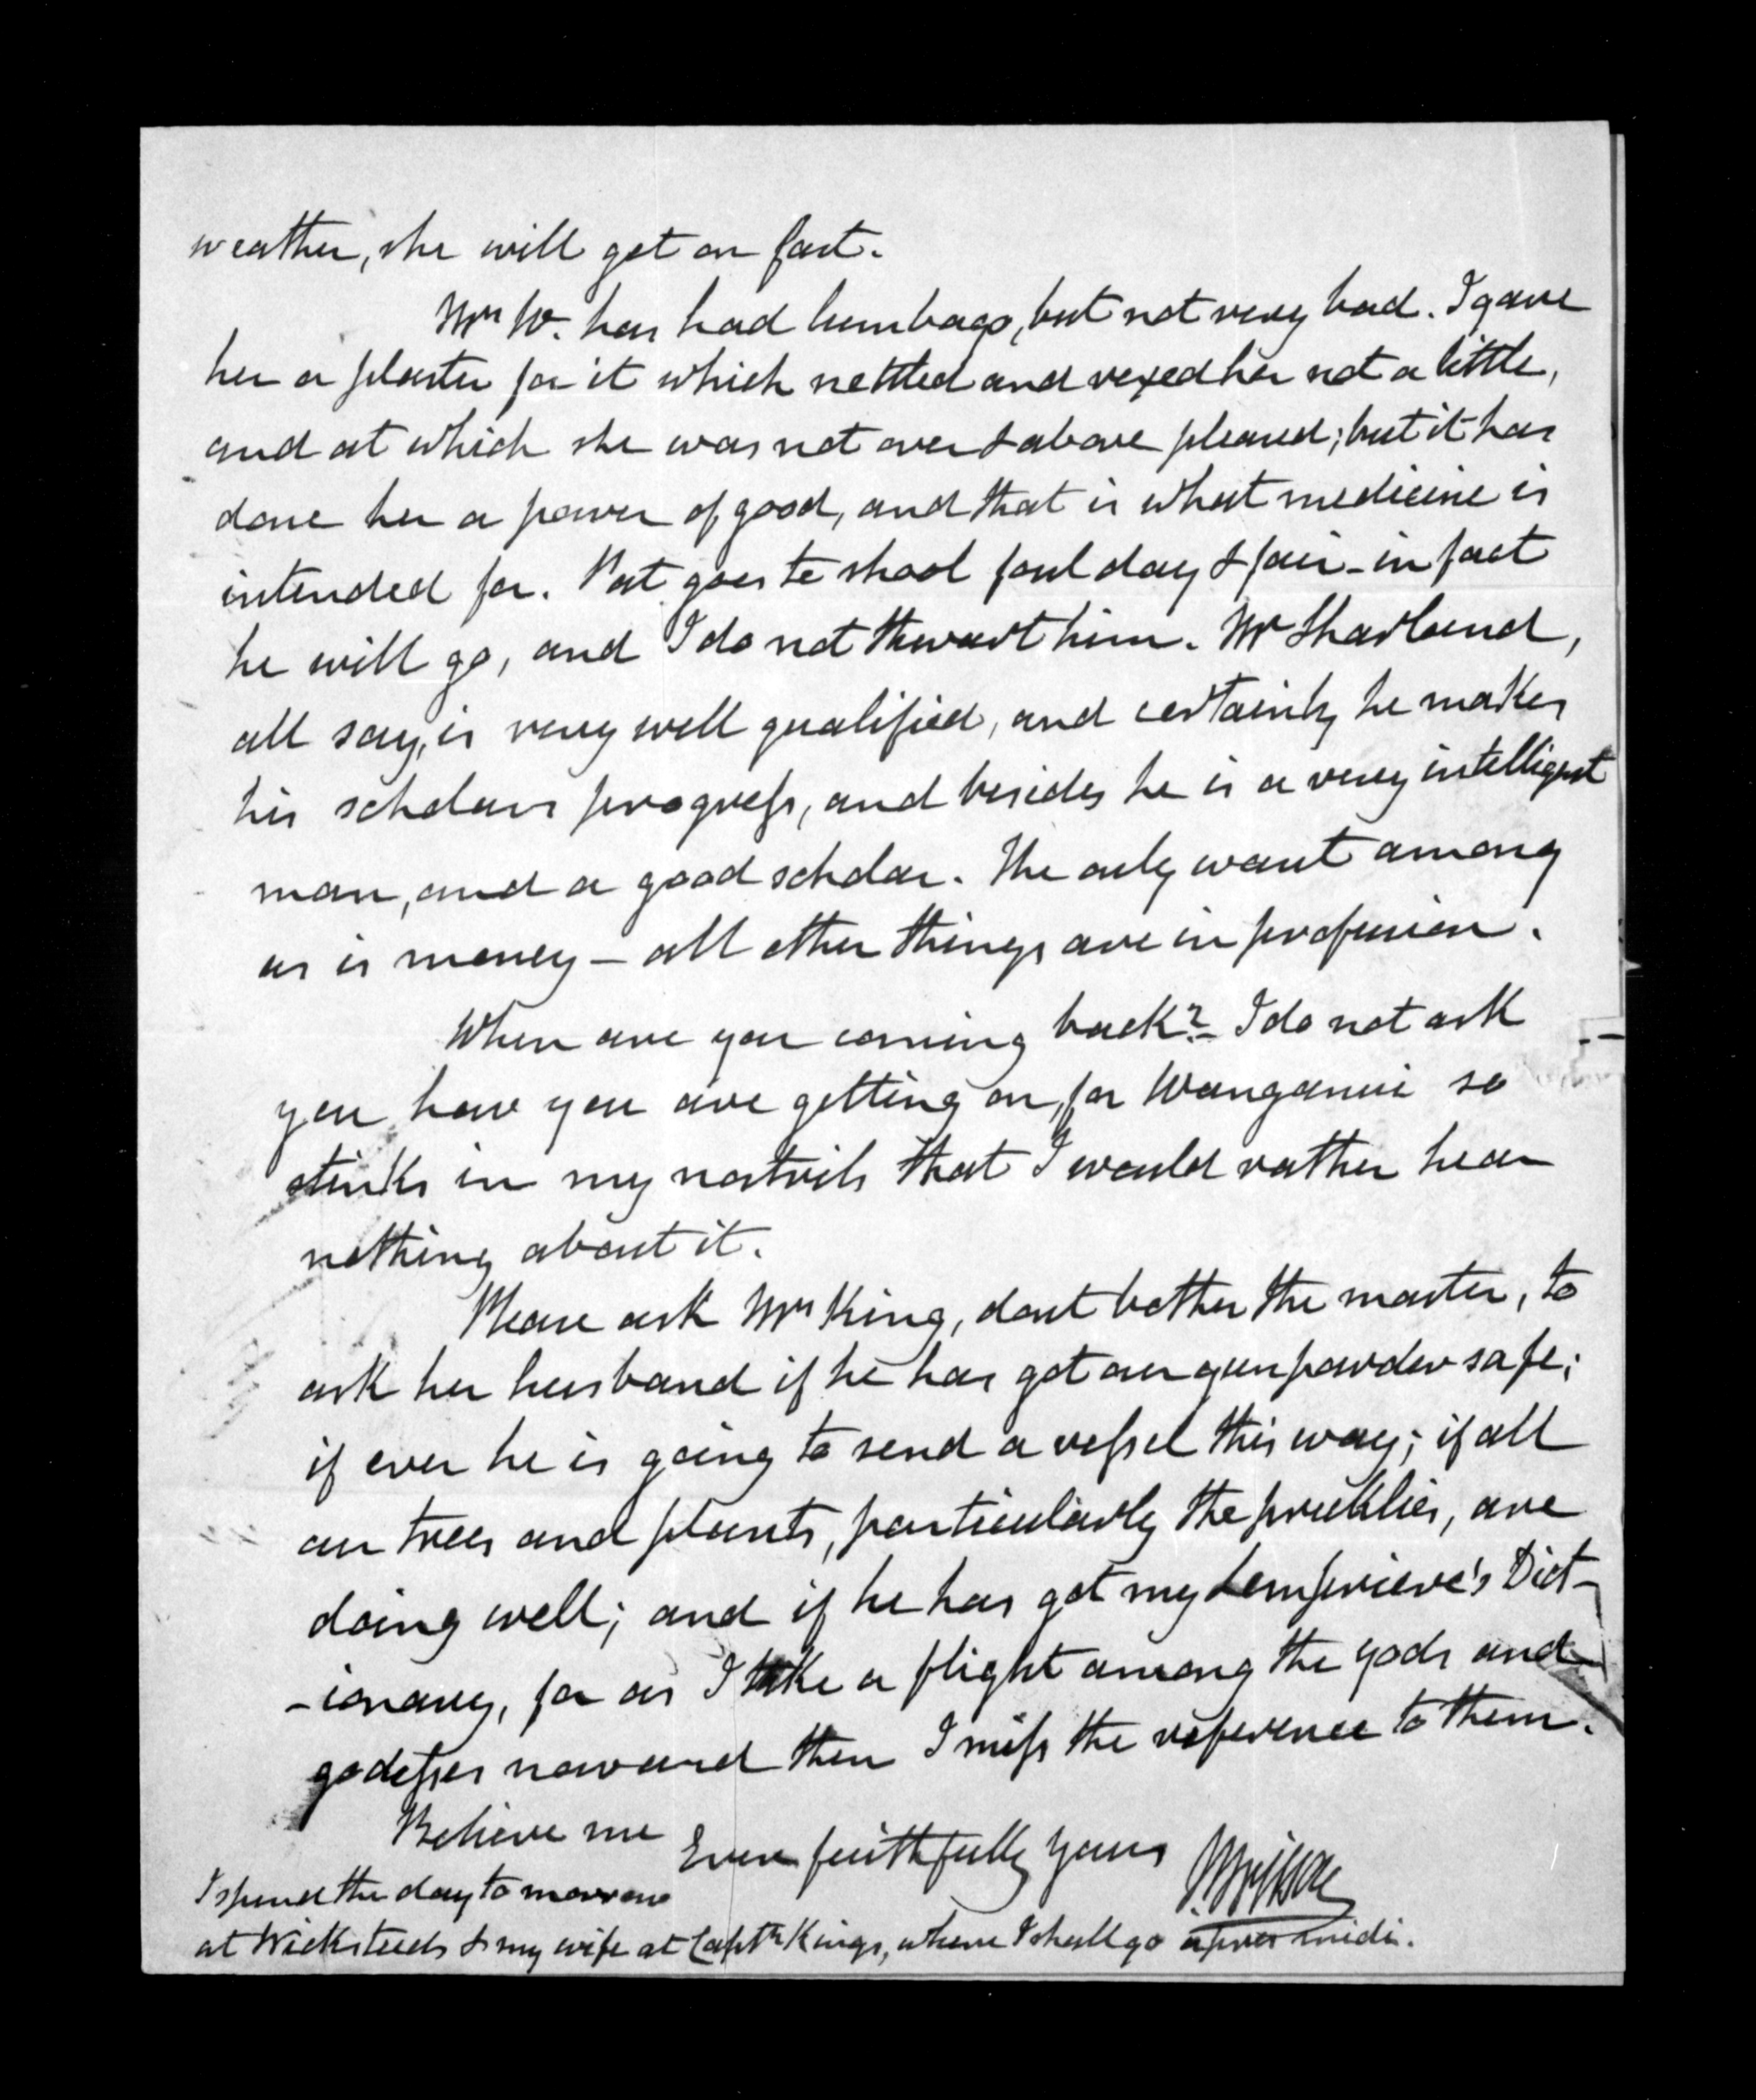 weather, she will get on fast.
Mrs W. has had lumbago, but not very bad. I gave
her a plaster for it which nettled and vexed her not a little,
and at which she was not over & above pleased; but it has
done her a power of good, and that is what medicine is
intended for. Pat goes to shool foul day & fair - in fact
he will go, and I do not thwart him. Mr Sharland,
all say, is very well qualified, and certainly he makes
his scholars progress, and besides he is a very intelligent
man, and a good scholar. The only want among
us is money - all other things are in profusion.
When are you coming back? - I do not ask
you how you are getting on, for Wanganui so
stinks in my nostrils that I would rather hear
nothing about it.
Please ask Mrs King, dont bother the master, to
ask her husband if he has got our gunpowder safe;
if ever he is going to send a vessel this way; if all
our trees and plants, particularly the pricklies, are
doing well; and if he has got my Lemprieve's Dict-
-ionary, for as I take a flight among the gods and
godesses now and then I miss the reference to them.
Believe me
Ever faithfully yours
I spend the day to morrow
at Wicksteeds & my wife at Captn Kings, where I shall go apres midi.